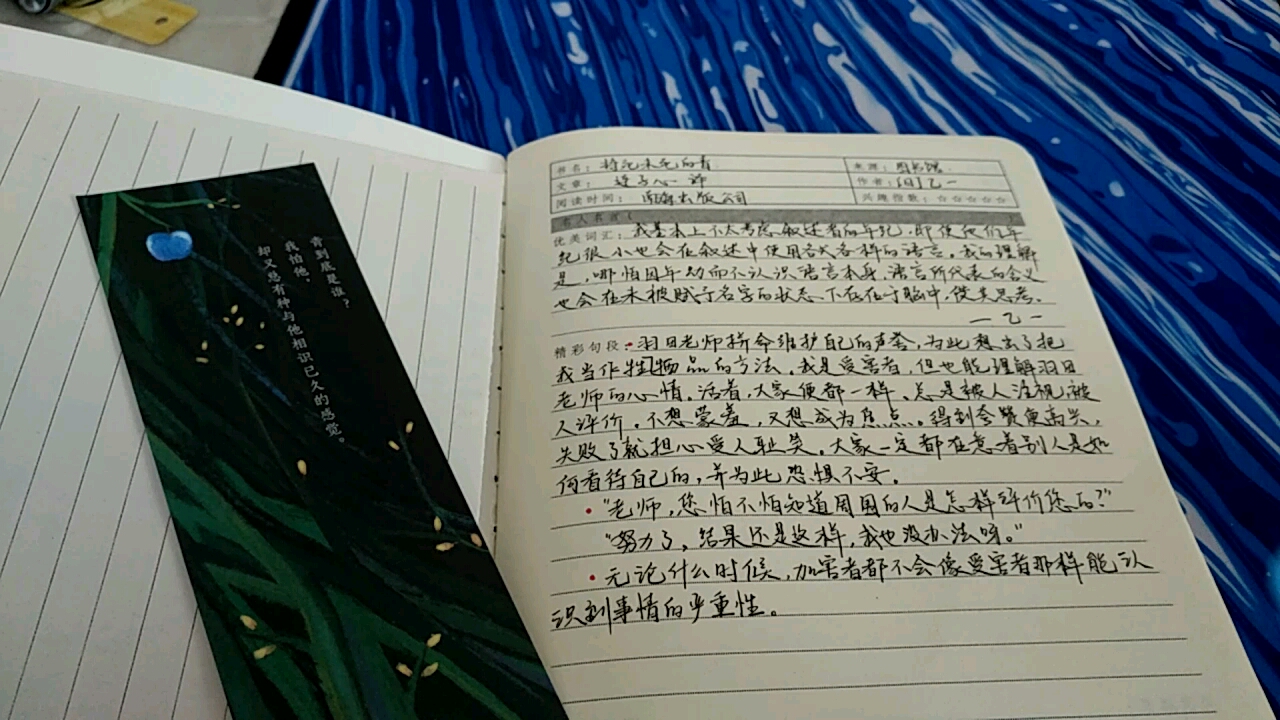 青到底是谁？
我怕他。
却又总有种与他相识已久的感觉。
书名：将死未死的青
来源：图书馆
文章：连子心 译
作者：[日]乙一
阅读时间：南海出版公司
兴趣指数：☆☆☆☆☆
优美词汇：我基本上不太考虑叙述者的年纪，即使他们年
纪很小也会在叙述中使用各式各样的语言。我的理解
是，哪怕因年幼而不认识语言本身，语言所代表的含义
也会在未被赋予名字的状态下存在于脑中，使其思考。
— 乙一
精彩句段：羽田老师拼命维护自己的声誉，为此想出了把
我当作牺牲品的方法。我是受害者，但也能理解羽田
老师的心情。活着，大家便都一样，总是被人注视，被
人评价。不想蒙羞，又想成为焦点。得到夸赞便高兴，
失败了就担心受人耻笑。大家一定都在意着别人是如
何看待自己的，并为此恐惧不安。
“老师，您怕不怕知道周围的人是怎样评价您的？”
“努力了，结果还是这样，我也没办法呀。”
无论什么时候，加害者都不会像受害者那样能认
识到事情的严重性。